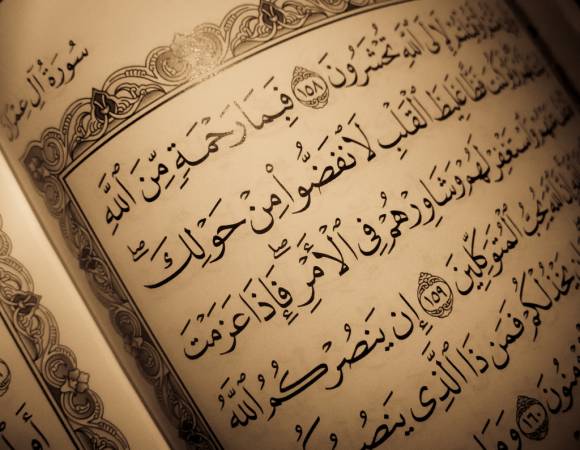 سُورَةُ آلِ
إِلَى ٱللَّهِ تُحْشَرُونَ ١٥٨ فَبِمَا رَحْمَةٍ مِّنَ ٱللَّهِ
كُنتَ فَظًّا غَلِيظَ ٱلْقَلْبِ لَٱنفَضُّوا۟ مِنْ حَوْلِكَ ۖ
وَٱسْتَغْفِرْ لَهُمْ وَشَاوِرْهُمْ فِى ٱلْأَمْرِ ۖ فَإِذَا عَزَمْتَ
يُحِبُّ ٱلْمُتَوَكِّلِينَ ١٥٩ إِن يَنصُرْكُمُ ٱللَّهُ
يَخْذُلْكُمْ فَمَن ذَا ٱلَّذِى
١٦٠